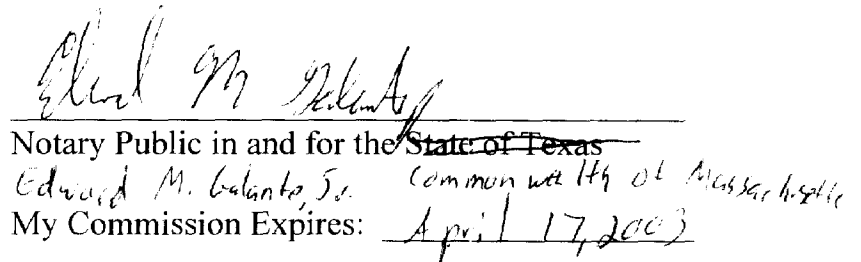 Edward M Galante Jr
Notary Public in and for the State of Texas
Edward M. Galante, Jr. Commonwealth of Massachusetts
My Commission Expires: April 17, 2003